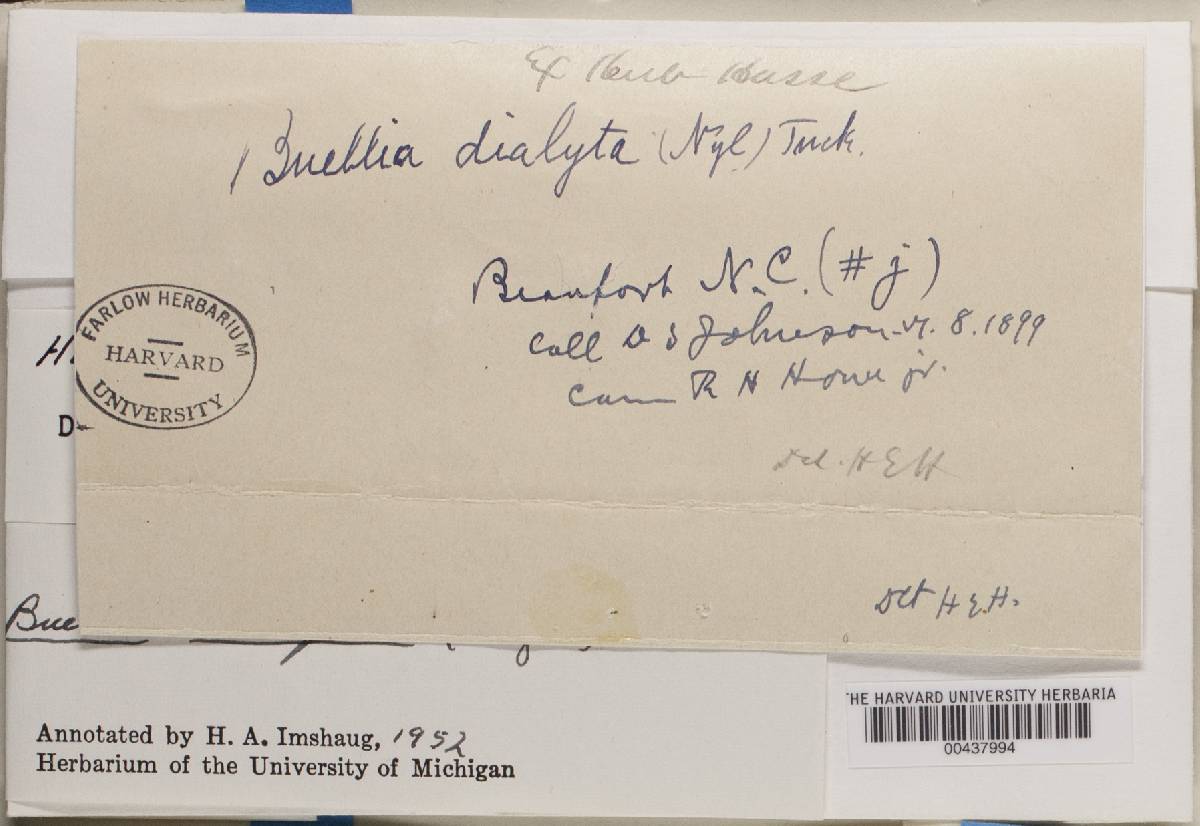 Ex Herb Hasse
Buellia dialyta (Nyl.) Tuck.
Beaufort N.C. (# j)
Coll D S Johnson 8.1899
Com R H Howe jr.
FARLOW HERBARIUM
HARVARD
UNIVERSITY
H.
D
Det. H E H
Det H E.H.
Bue
Annotated by H. A. Imshaug, 1952
Herbarium of the University of Michigan
HE HARVARD UNIVERSITY HERBARIA
00437994